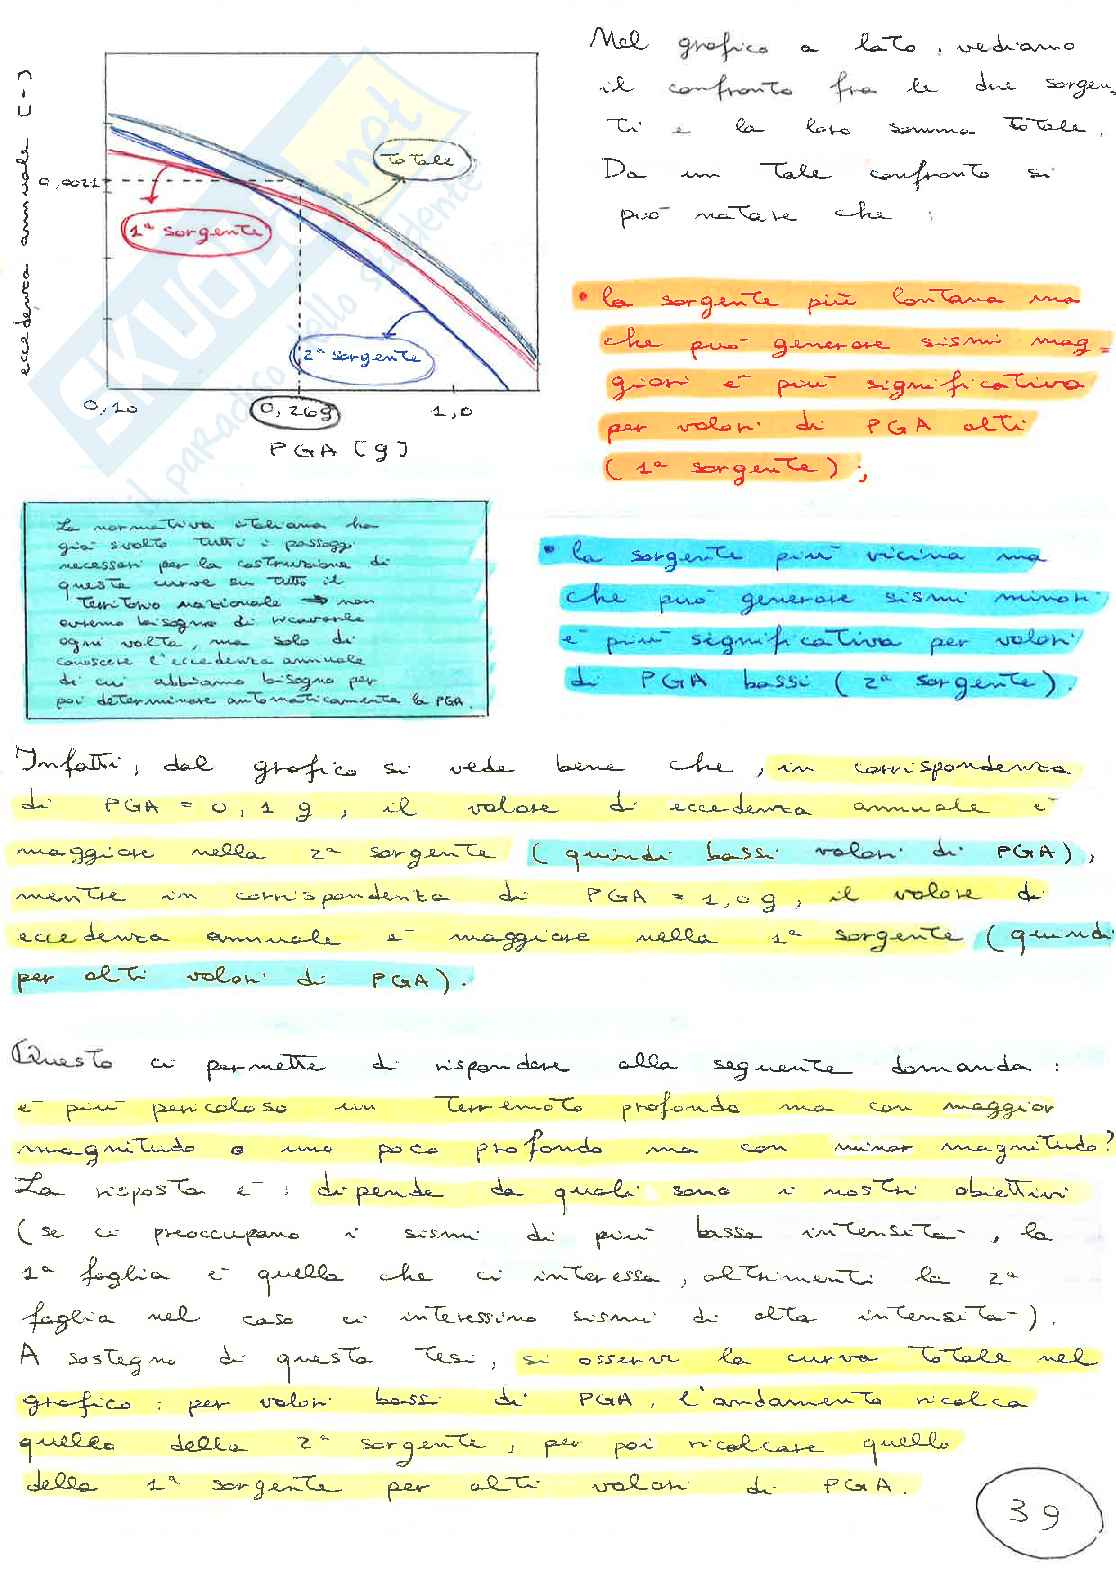 eccedenza annuale [-]
0,0021
totale
1ª sorgente
2ª sorgente
0,10
0,26g
1,0
PGA [g]
SKUOLA.net
il paradiso dello studente
Nel grafico a lato, vediamo
il confronto fra le due sorgen-
ti e la loro somma totale.
Da un tale confronto si
può notare che:
• la sorgente più lontana ma
che può generare sismi mag-
giori è più significativa
per valori di PGA alti
(1ª sorgente);
La normativa italiana ha
già svolto tutti i passaggi
necessari per la costruzione di
queste curve su tutto il
territorio nazionale → non
avremo bisogno di ricavarle
ogni volta, ma solo di
conoscere l'eccedenza annuale
di cui abbiamo bisogno per
poi determinare automaticamente la PGA.
• la sorgente più vicina ma
che può generare sismi minori
è più significativa per valori
di PGA bassi (2ª sorgente).
Infatti, dal grafico si vede bene che, in corrispondenza
di PGA = 0,1 g, il valore di eccedenza annuale è
maggiore nella 2ª sorgente (quindi bassi valori di PGA),
mentre in corrispondenza di PGA = 1,0 g, il valore di
eccedenza annuale è maggiore nella 1ª sorgente (quindi
per alti valori di PGA).
Questo ci permette di rispondere alla seguente domanda:
è più pericoloso un terremoto profondo ma con maggior
magnitudo o uno poco profondo ma con minor magnitudo?
La risposta è: dipende da quali sono i nostri obiettivi
(se ci preoccupano i sismi di più bassa intensità, la
1ª faglia è quella che ci interessa, altrimenti la 2ª
faglia nel caso ci interessino sismi di alta intensità).
A sostegno di questa tesi, si osservi la curva totale nel
grafico: per valori bassi di PGA, l'andamento ricalca
quello della 2ª sorgente, per poi ricalcare quello
della 1ª sorgente per alti valori di PGA.
39